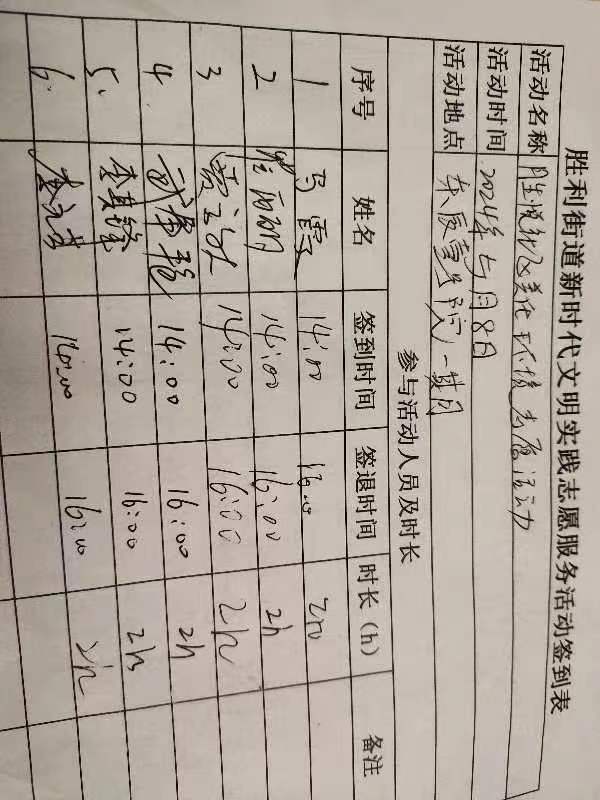 胜利街道新时代文明实践志愿服务活动签到表
活动名称 胜悦社区美化环境志愿活动
活动时间 2024年七月8日
活动地点 东辰壹号院一期门
参与活动人员及时长
序号 姓名 签到时间 签退时间 时长（h） 备注
1 马雪 14:00 16:00
2 14:00 16:00 2h
3 14:00 16:00 2h
4 14:00 16:00 2h
5. 李其锋 14:00 16:00 2h
6. 14:00 16:00 2h